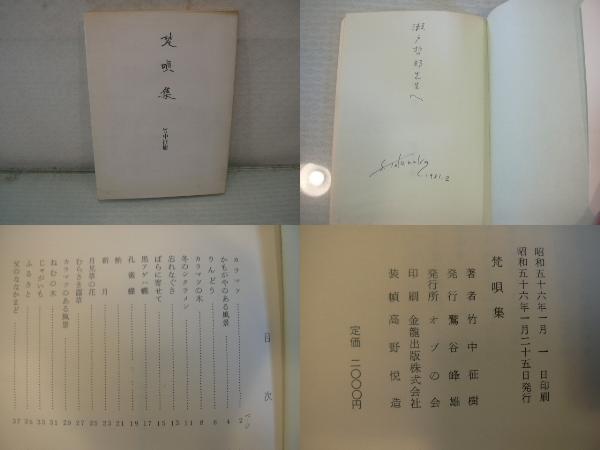 梵唄集
竹中征樹
瀬戸哲郎先生へ
1981.2
目次
ページ
カラマツ 2
かもがやのある風景 4
りんどう 6
カラマツの木 8
冬のシクラメン 11
忘れなぐさ 13
ばらに寄せて 15
黒アゲハ蝶 17
孔雀蝶 19
蛤 21
新月 23
月見草の花 25
むらさき露草 27
カラマツのある風景 29
ねむの木 31
じゃがいも 33
ふるさと 34
父のななかまど 37
昭和五十六年一月一日印刷
昭和五十六年一月二十五日発行
梵唄集
著者 竹中征樹
発行 鷲谷峰雄
発行所 オブの会
印刷 金龍出版株式会社
装幀 高野悦造
定価 二〇〇〇円